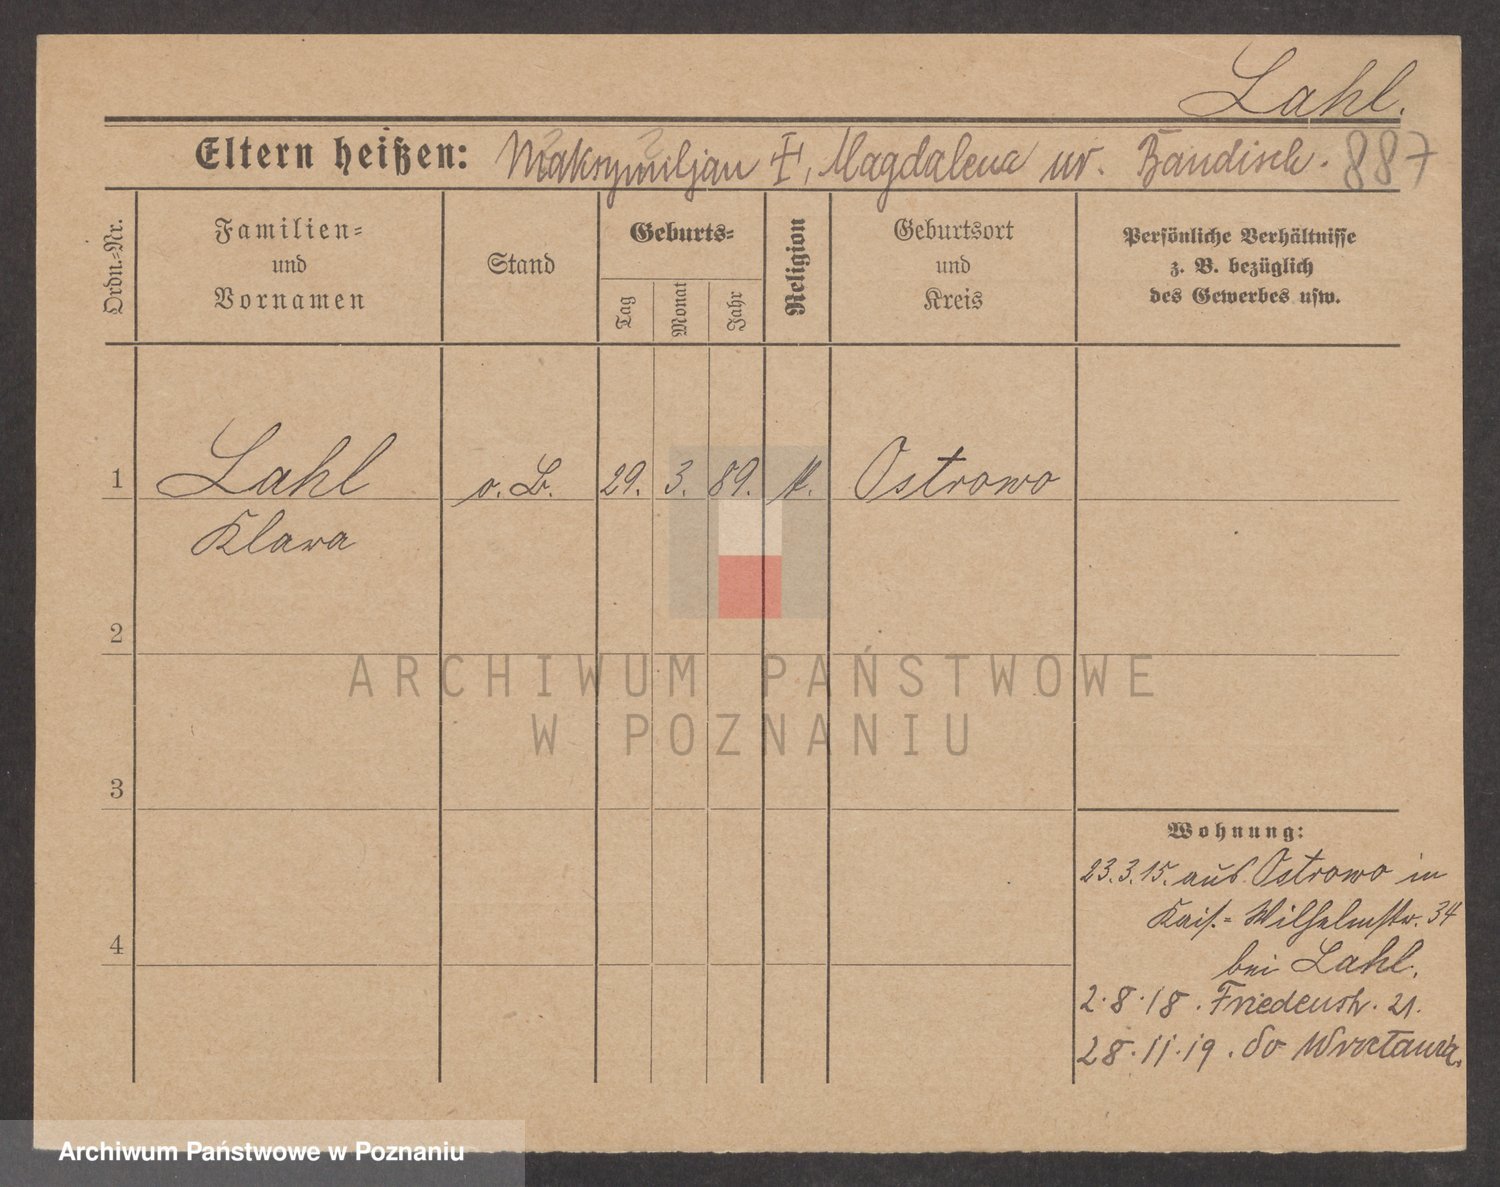 Lahl.
Eltern heißen: Maksymiljan †, Magdalena ur. Bandisch. 887
Ordn.=Nr.
Familien=
und
Vornamen
Stand
Geburts=
Tag
Monat
Jahr
Religion
Geburtsort
und
Kreis
Persönliche Verhältnisse
z. B. bezüglich
des Gewerbes usw.
1 Lahl o. B. 29. 3. 89. k. Ostrowo
Klara
2
3
4
Wohnung:
23.3.15. aus Ostrowo in
Kais.=Wilhelmstr. 34
bei Lahl.
2.8.18. Friedenstr. 21.
28.11.19. do Wrocławia.
ARCHIWUM PAŃSTWOWE
W POZNANIU
Archiwum Państwowe w Poznaniu